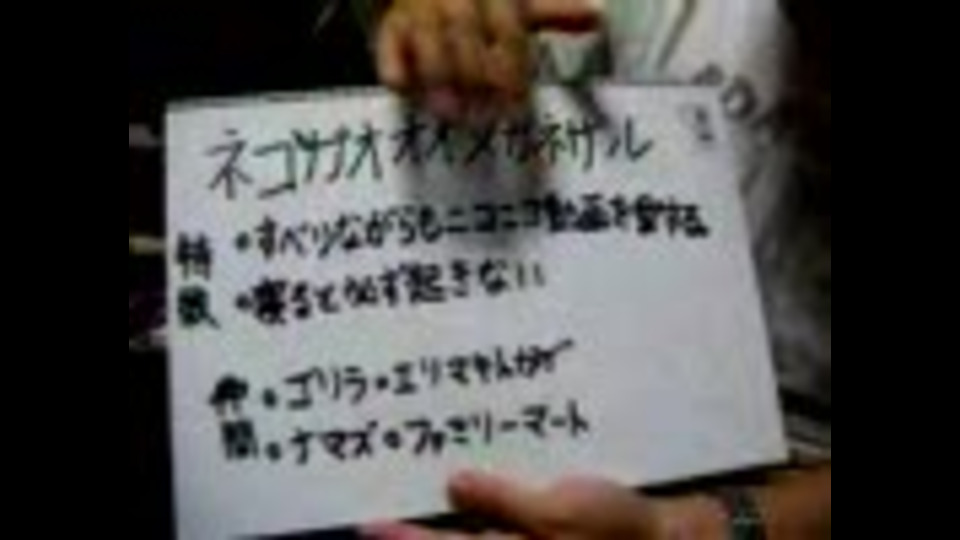 ネコゲオオイメガネザル
特徴
・すべりながらもニコニコ動画を愛する
・寝ると必ず起きない
仲間
・ゴリラ・エリマキトカゲ
・ナマズ・ファミリーマート